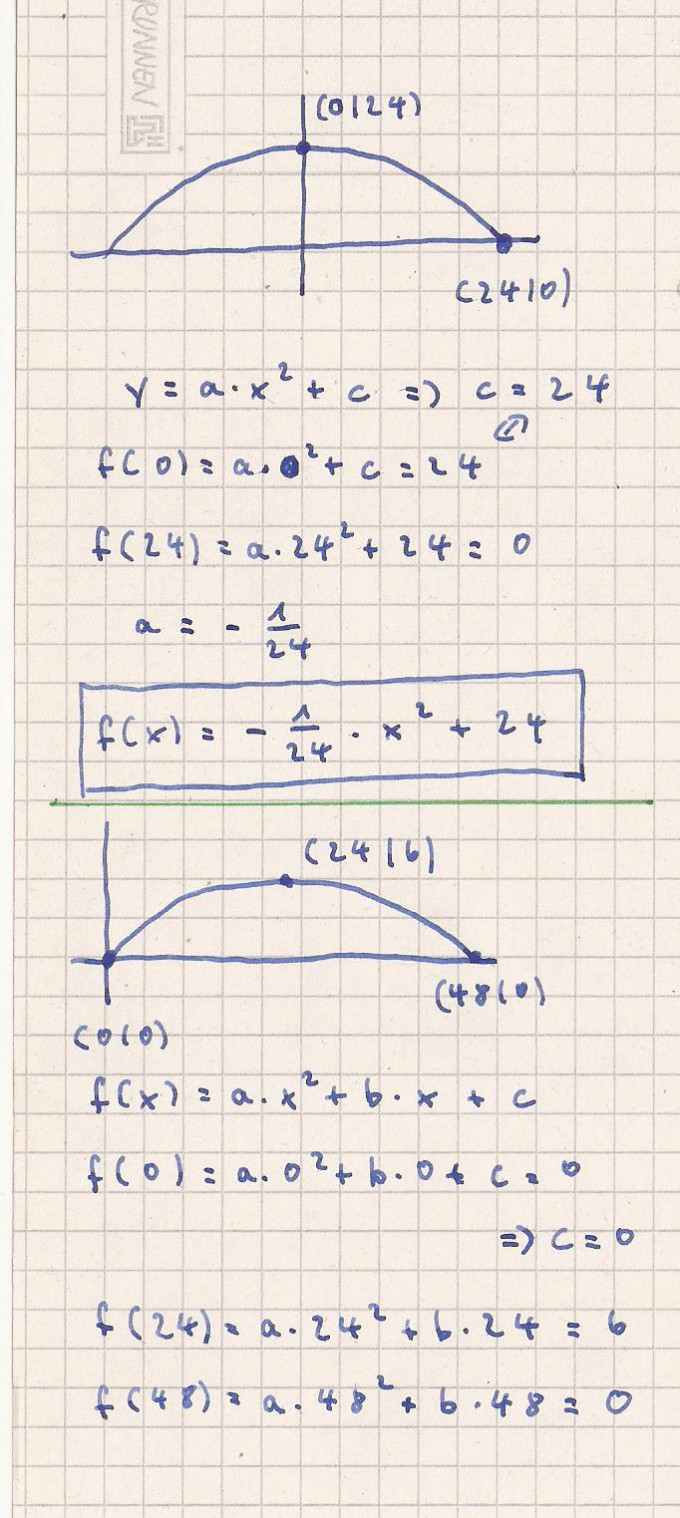 RUNNEN
(0|24)
(24|0)
y = a · x² + c => c = 24
f(0) = a · 0² + c = 24
f(24) = a · 24² + 24 = 0
a = - 1/24
f(x) = - 1/24 · x² + 24
(24|6)
(48|0)
(0|0)
f(x) = a · x² + b · x + c
f(0) = a · 0² + b · 0 + c = 0
=> c = 0
f(24) = a · 24² + b · 24 = 6
f(48) = a · 48² + b · 48 = 0